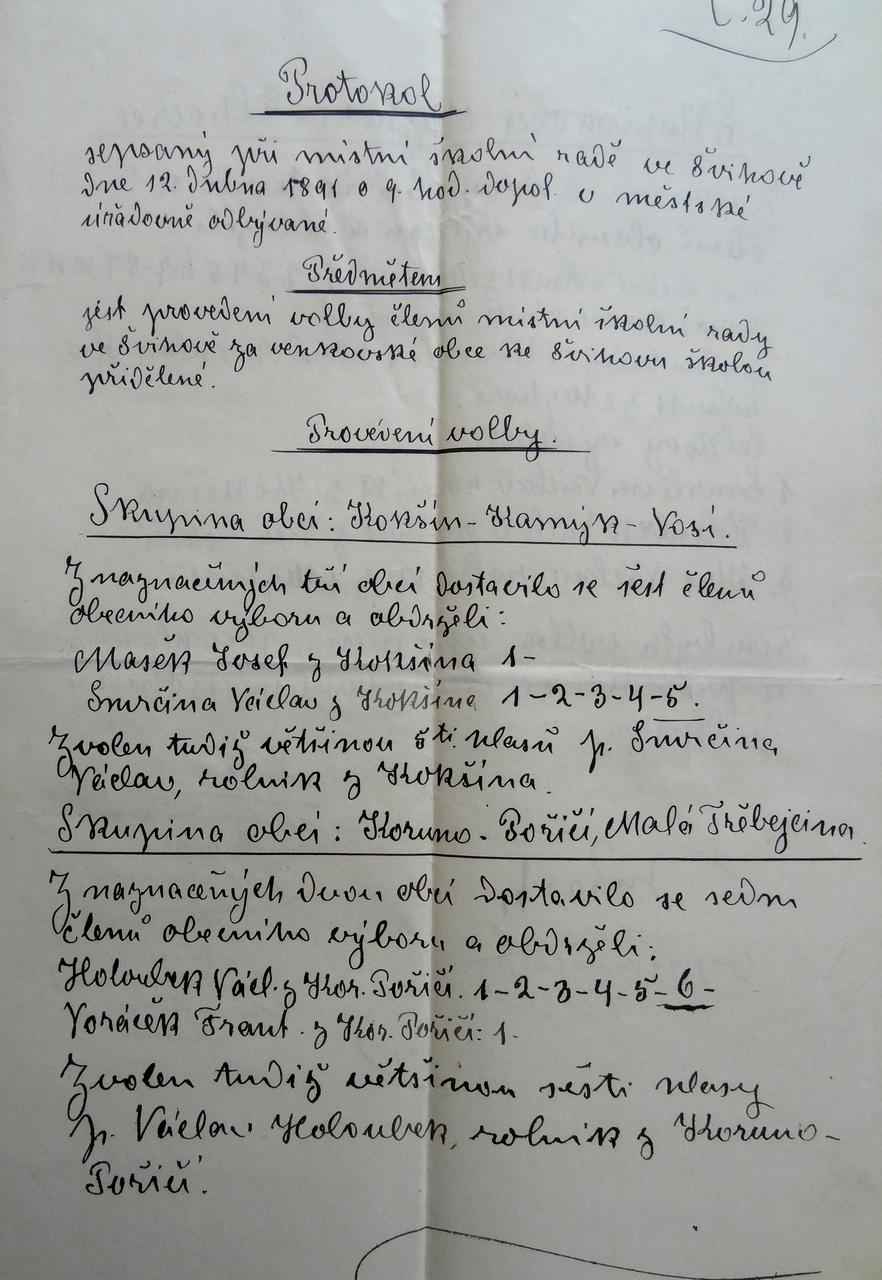 č. 29.
Protokol
sepsaný při místní školní radě ve Švihově
dne 12. dubna 1891 o 9. hod. dopol. v městské
úřadovně odbývané.
Předmětem
jest provedení volby členů místní školní rady
ve Švihově za venkovské obce ke Švihovu školou
přidělené.
Provedení volby.
Skupina obcí: Kokšín - Kamýk - Vosí.
Z naznačených tří obcí dostavilo se šest členů
obecního výboru a obdrželi:
Mašek Josef z Kokšína 1-
Smrčina Václav z Kokšína 1-2-3-4-5.
Zvolen tudíž většinou 5ti hlasů p. Smrčina
Václav, rolník z Kokšína.
Skupina obcí: Koruno-Poříčí, Malá Třebejcina.
Z naznačených dvou obcí dostavilo se sedm
členů obecního výboru a obdrželi:
Holoubek Václ. z Kor. Poříčí. 1-2-3-4-5-6-
Voráček Frant. z Kor. Poříčí: 1-
Zvolen tudíž většinou šesti hlasy
p. Václav Holoubek, rolník z Koruno-
Poříčí.